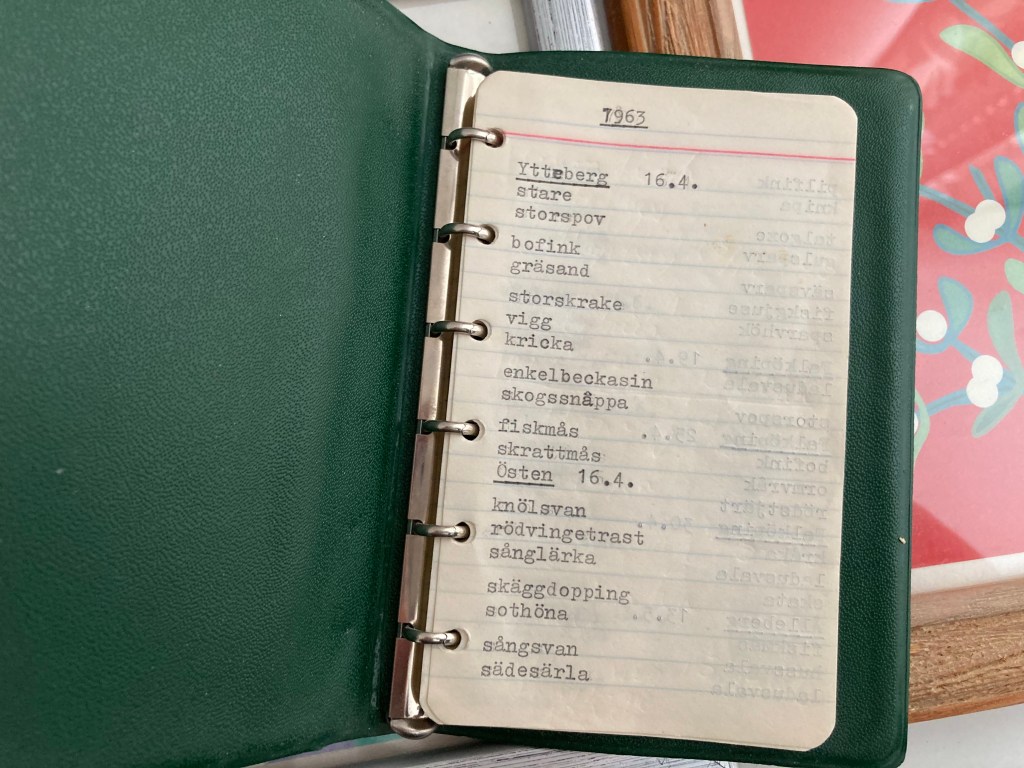 1963
Ytteberg 16.4.
stare
storspov
bofink
gräsand
storskrake
vigg
kricka
enkelbeckasin
skogssnäppa
fiskmås
skrattmås
Östen 16.4.
knölsvan
rödvingetrast
sånglärka
skäggdopping
sothöna
sångsvan
sädesärla